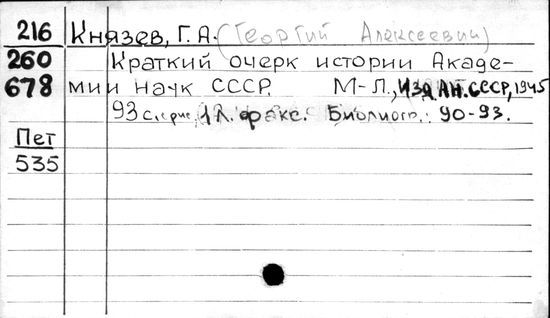 216 Князев, Г. А. (Георгий Алексеевич)
260 Краткий очерк истории Акаде-
678 мии наук СССР. М-Л., Изд АН. СССР, 1945
93 с. 1 л. факс. Библиогр.: 90-93.
Пет
535